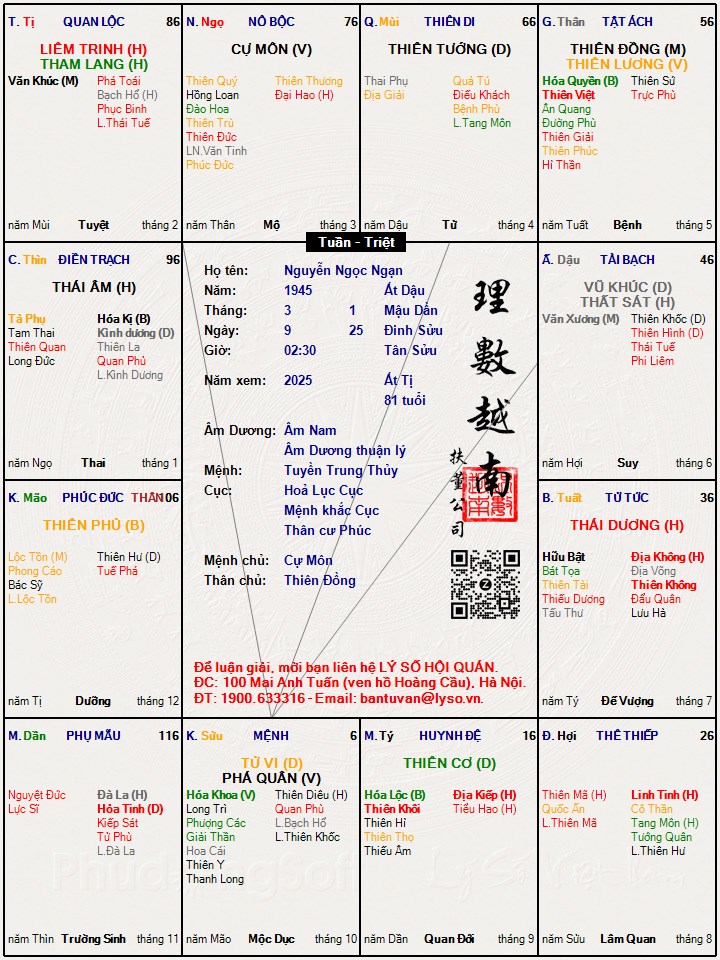 T. Tị QUAN LỘC 86
LIÊM TRINH (H)
THAM LANG (H)
Văn Khúc (M) Phá Toái
Bạch Hổ (H)
Phục Binh
L.Thái Tuế
năm Mùi Tuyệt tháng 2
N. Ngọ NÔ BỘC 76
CỰ MÔN (V)
Thiên Quý Thiên Thương
Hồng Loan Đại Hao (H)
Đào Hoa
Thiên Trù
Thiên Đức
LN.Văn Tinh
Phúc Đức
năm Thân Mộ tháng 3
Q. Mùi THIÊN DI 66
THIÊN TƯỚNG (D)
Thai Phụ Quả Tú
Địa Giải Điếu Khách
Bệnh Phù
L.Tang Môn
năm Dậu Tử tháng 4
G. Thân TẬT ÁCH 56
THIÊN ĐỒNG (M)
THIÊN LƯƠNG (V)
Hóa Quyền (B) Thiên Sứ
Thiên Việt Trực Phù
Ân Quang
Đường Phù
Thiên Giải
Thiên Phúc
Hỉ Thần
năm Tuất Bệnh tháng 5
C. Thìn ĐIỀN TRẠCH 96
THÁI ÂM (H)
Tả Phụ Hóa Kị (B)
Tam Thai Kình dương (D)
Thiên Quan Thiên La
Long Đức Quan Phủ
L.Kình Dương
năm Ngọ Thai tháng 1
Tuần - Triệt
Họ tên: Nguyễn Ngọc Ngạn
Năm: 1945 Ất Dậu
Tháng: 3 1 Mậu Dần
Ngày: 9 25 Đinh Sửu
Giờ: 02:30 Tân Sửu
Năm xem: 2025 Ất Tị
81 tuổi
Âm Dương: Âm Nam
Âm Dương thuận lý
Mệnh: Tuyền Trung Thủy
Cục: Hoả Lục Cục
Mệnh khắc Cục
Thân cư Phúc
Mệnh chủ: Cự Môn
Thân chủ: Thiên Đồng
理數越南
扶董公司
Để luận giải, mời bạn liên hệ LÝ SỐ HỘI QUÁN.
ĐC: 100 Mai Anh Tuấn (ven hồ Hoàng Cầu), Hà Nội.
ĐT: 1900.633316 - Email: bantuvan@lyso.vn.
Ấ. Dậu TÀI BẠCH 46
VŨ KHÚC (D)
THẤT SÁT (H)
Văn Xương (M) Thiên Khốc (D)
Thiên Hình (D)
Thái Tuế
Phi Liêm
năm Hợi Suy tháng 6
K. Mão PHÚC ĐỨC THÂN 106
THIÊN PHỦ (B)
Lộc Tồn (M) Thiên Hư (D)
Phong Cáo Tuế Phá
Bác Sỹ
L.Lộc Tồn
năm Tị Dưỡng tháng 12
B. Tuất TỬ TỨC 36
THÁI DƯƠNG (H)
Hữu Bật Địa Không (H)
Bát Tọa Địa Võng
Thiên Tài Thiên Không
Thiếu Dương Đẩu Quân
Tấu Thư Lưu Hà
năm Tý Đế Vượng tháng 7
M. Dần PHỤ MẪU 116
Nguyệt Đức Đà La (H)
Lực Sĩ Hỏa Tinh (D)
Kiếp Sát
Tử Phù
L.Đà La
năm Thìn Trường Sinh tháng 11
K. Sửu MỆNH 6
TỬ VI (D)
PHÁ QUÂN (V)
Hóa Khoa (V) Thiên Diêu (H)
Long Trì Quan Phù
Phượng Các L.Bạch Hổ
Giải Thần L.Thiên Khốc
Hoa Cái
Thiên Y
Thanh Long
năm Mão Mộc Dục tháng 10
M. Tý HUYNH ĐỆ 16
THIÊN CƠ (D)
Hóa Lộc (B) Địa Kiếp (H)
Thiên Khôi Tiểu Hao (H)
Thiên Hỉ
Thiên Thọ
Thiếu Âm
năm Dần Quan Đới tháng 9
Đ. Hợi THÊ THIẾP 26
Thiên Mã (H) Linh Tinh (H)
Quốc Ấn Cô Thần
L.Thiên Mã Tang Môn (H)
Tướng Quân
L.Thiên Hư
năm Sửu Lâm Quan tháng 8